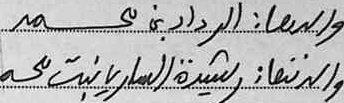 والدها: الردادي بن محمد
والدتها: رشيدة السارية بنت محمد